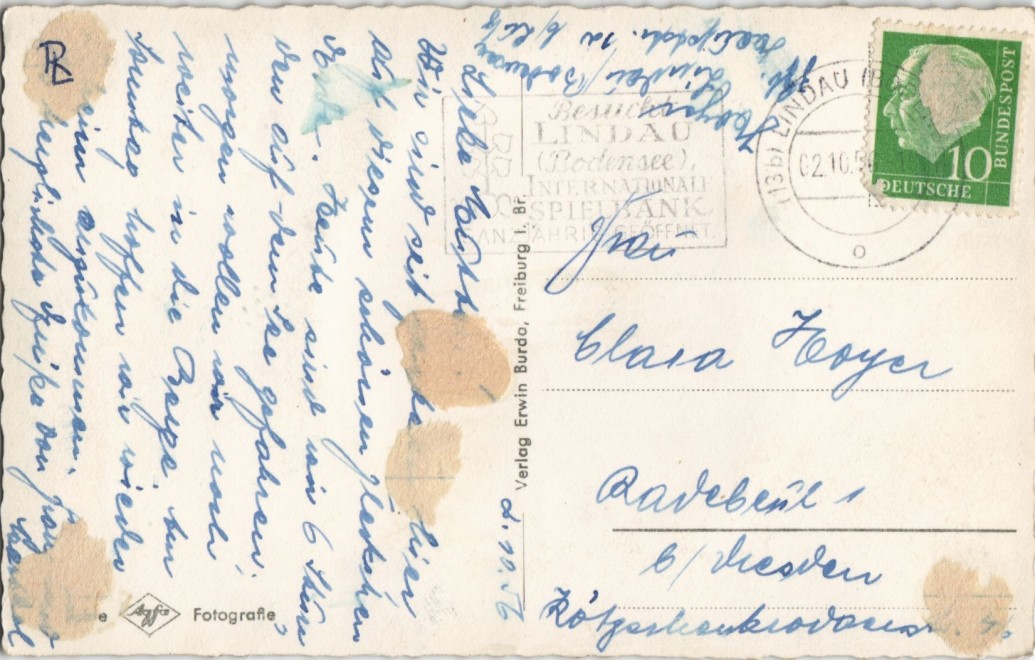 Besucht
LINDAU
(Bodensee),
INTERNATIONALE
SPIELBANK
GANZJÄHRIG GEÖFFNET.
(13b) LINDAU
02.10.56
DEUTSCHE
BUNDESPOST
10
Hoyer
Lindau/Bodensee
2.10.56
Liebe Mutti
Wir sind seit Hier
auf diesem schönen Fleckchen
Erde. Heute sind wir 6 Stun
den auf dem See gefahren,
morgen wollen wir noch
weiter in die Berge. Am
Sonntag hoffen wir wieder
anzukommen.
Herzliche Grüße von
Frau
Clara Hoyer
Radebeul 1
b/Dresden
Verlag Erwin Burda, Freiburg i. Br.
Agfa
Fotografie